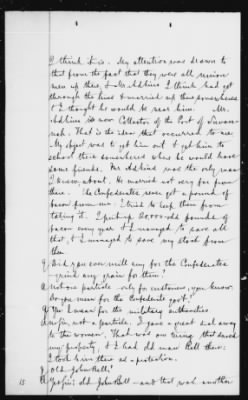 I think it is. My attention was drawn to
that from the fact that they were all union
men up there, & Mr. Adkins I think had got
through the lines & married up there somewheres
& I thought he would be near him. Mr.
Adkins is now Collector of the Port of Savan-
nah. That is the idea that occurred to me.
My object was to get him out & get him to
school there somewheres where he would have
some friends. Mr. Adkins was the only man
I knew about. He married not very far from
there. The Confederates never got a pound of
bacon from me. I tried to keep them from
taking it. I put up 20,000 odd pounds of
bacon every year & I managed to save all
that, & I managed to save my stock from
them
Q Did you ever mill any for the Confederates
— grind any grain for them?
A Not one particle — only for customers, you know.
Do you mean for the Confederate govt?
Q Yes I mean for the military authorities
A No sir, not a particle. I gave a great deal away
to the women. That was one thing that saved
my property, & I had old man Bell there;
I took him there as a protection.
Q Old John Bell?
A Yes sir; old John Bell — and that was another
15